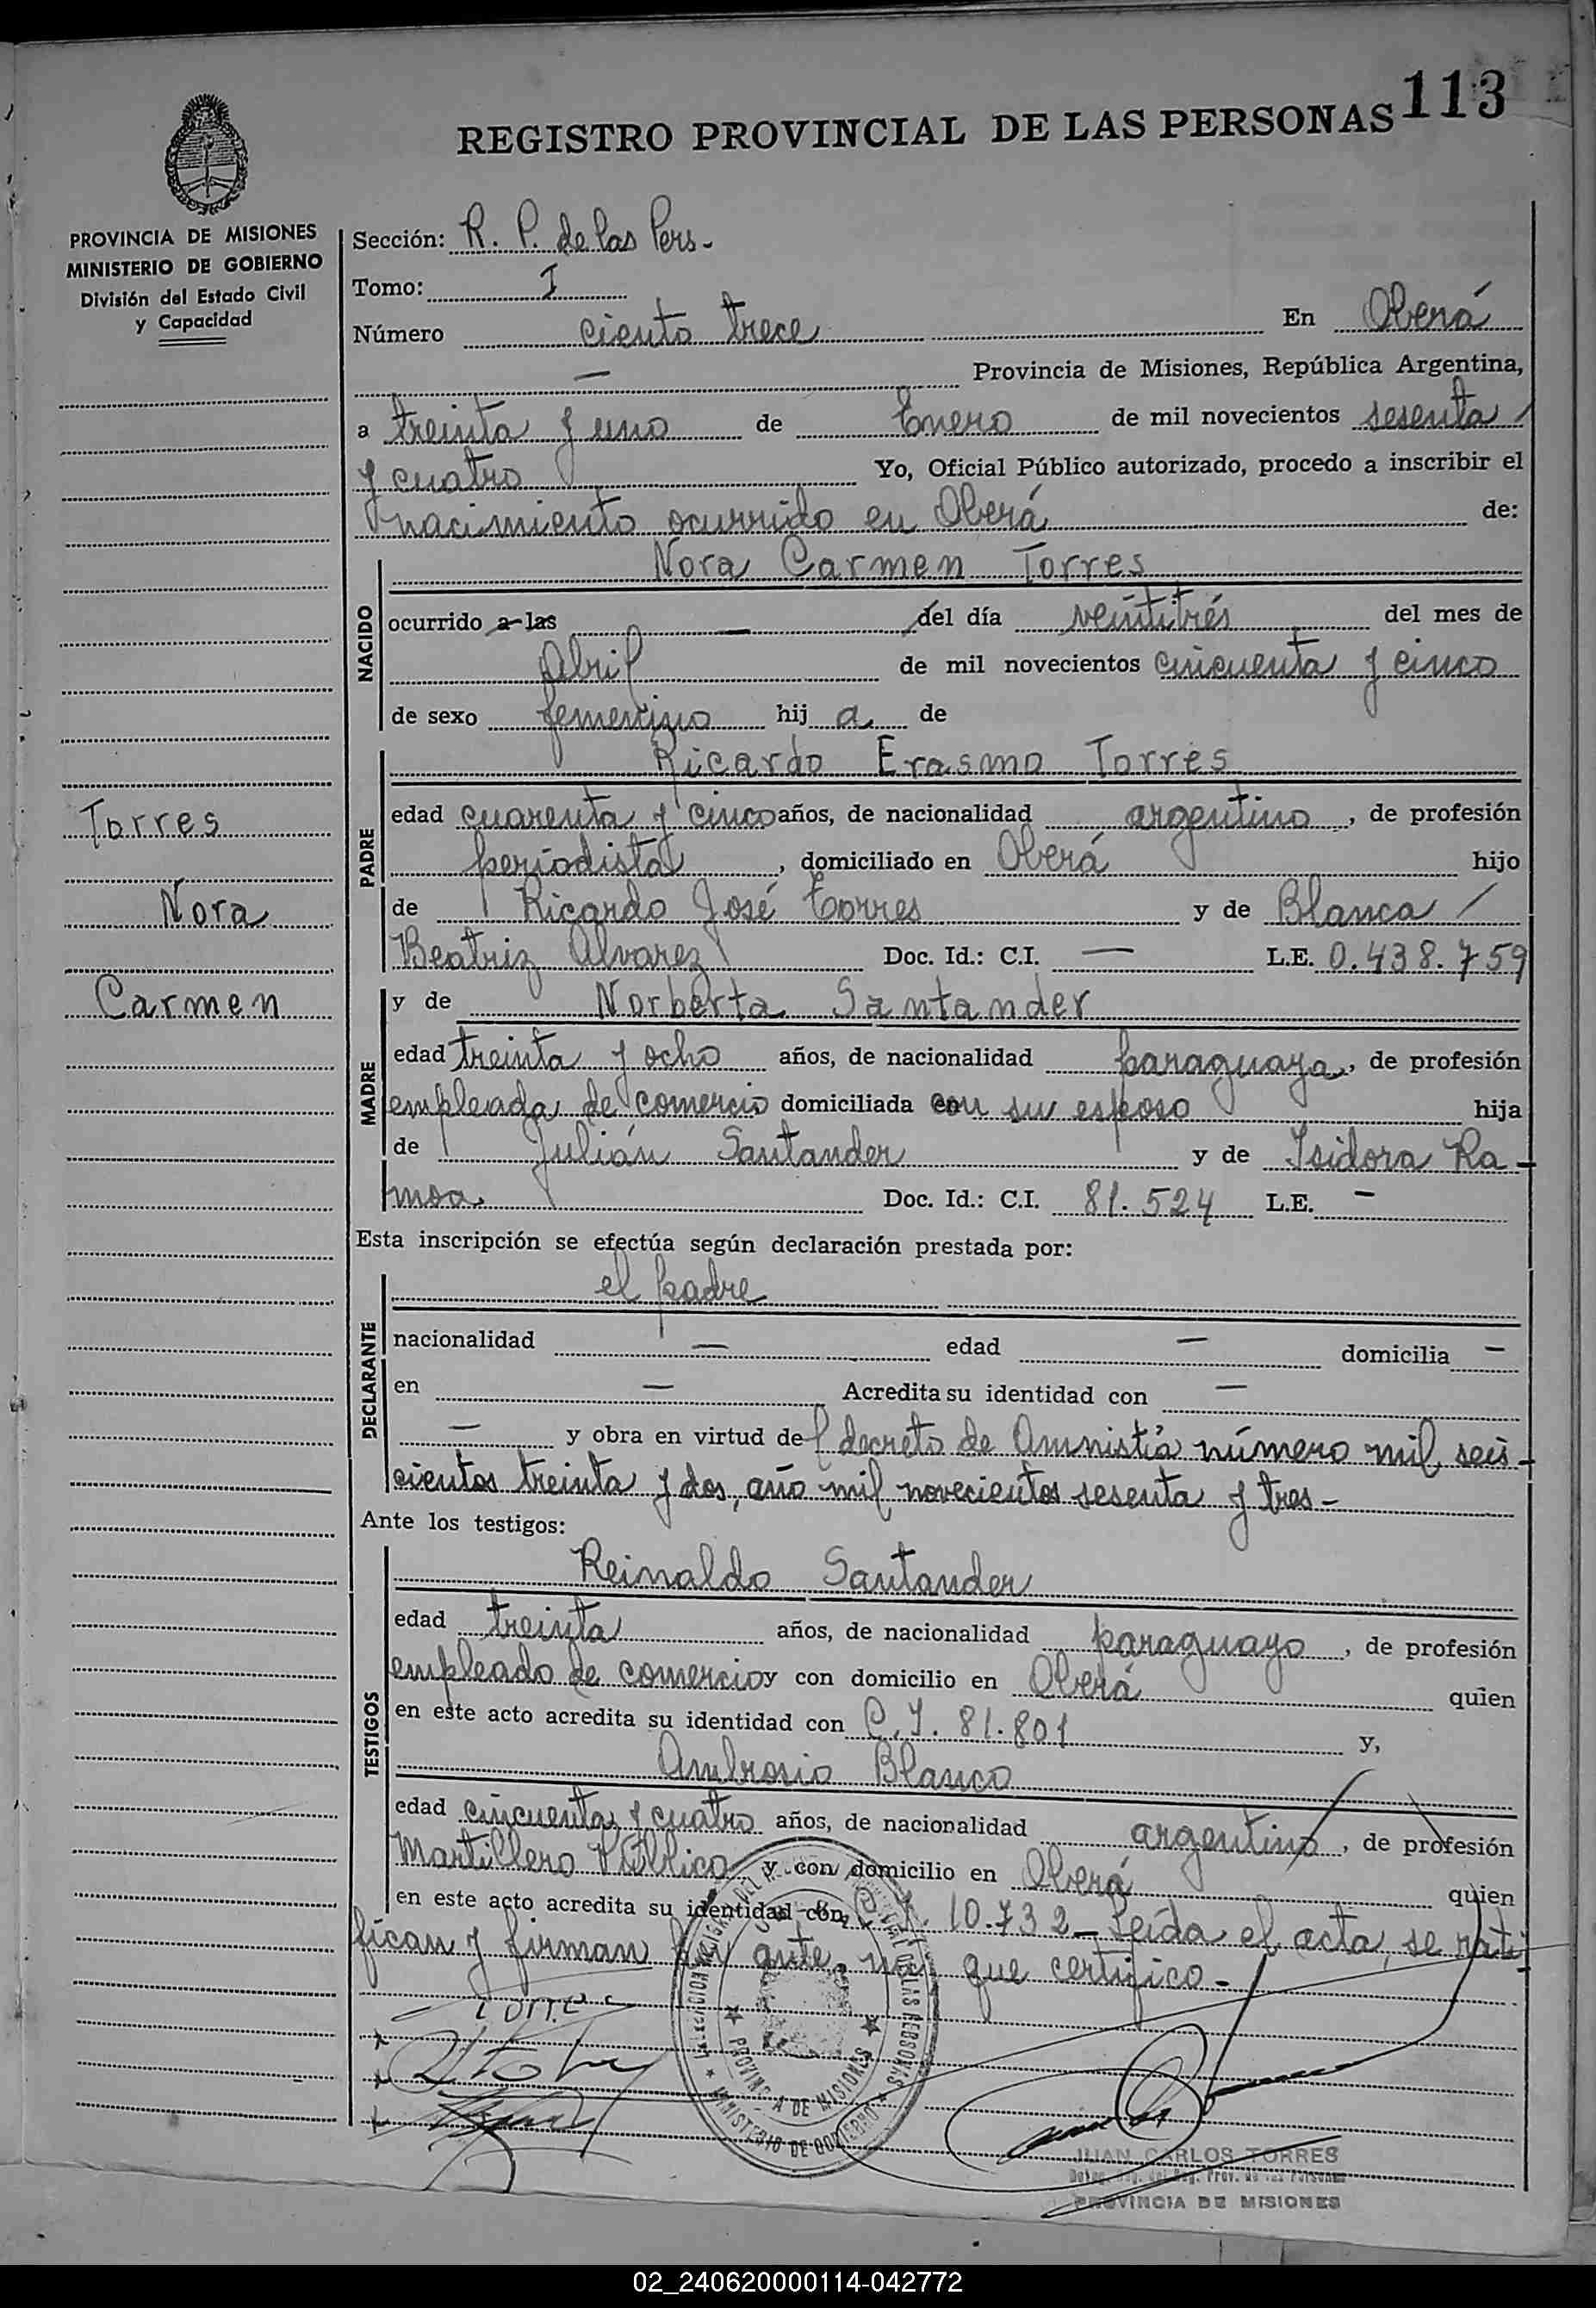 113
REGISTRO PROVINCIAL DE LAS PERSONAS
PROVINCIA DE MISIONES
MINISTERIO DE GOBIERNO
División del Estado Civil
y Capacidad
Sección: R. P. de las Pers.
Tomo: I
Número ciento trece En Oberá
— Provincia de Misiones, República Argentina,
a treinta y uno de Enero de mil novecientos sesenta
y cuatro Yo, Oficial Público autorizado, procedo a inscribir el
nacimiento ocurrido en Oberá de:
NACIDO
Nora Carmen Torres
ocurrido a las — del día veintitrés del mes de
Abril de mil novecientos cincuenta y cinco
de sexo femenino hij a de
PADRE
Ricardo Erasmo Torres
edad cuarenta y cinco años, de nacionalidad argentino, de profesión
periodista, domiciliado en Oberá hijo
de Ricardo José Torres y de Blanca
Beatriz Alvarez Doc. Id.: C.I. — L.E. 0.438.759
Torres
Nora
Carmen
MADRE
y de Norberta Santander
edad treinta y ocho años, de nacionalidad paraguaya, de profesión
empleada de comercio domiciliada con su esposo hija
de Julián Santander y de Isidora Ra-
moa. Doc. Id.: C.I. 81.524 L.E. —
Esta inscripción se efectúa según declaración prestada por:
DECLARANTE
el padre
nacionalidad — edad — domicilia —
en — Acredita su identidad con —
— y obra en virtud del decreto de Amnistía número mil seis-
cientos treinta y dos, año mil novecientos sesenta y tres-
Ante los testigos:
TESTIGOS
Reinaldo Santander
edad treinta años, de nacionalidad paraguayo, de profesión
empleado de comercio y con domicilio en Oberá quien
en este acto acredita su identidad con C.I. 81.801 y,
Ambrosio Blanco
edad cincuenta y cuatro años, de nacionalidad argentino, de profesión
Martillero Público y con domicilio en Oberá quien
en este acto acredita su identidad con C.I. 10.732- Leída el acta, se rati-
fican y firman por ante mí que certifico.-
Torres
PROVINCIA DE MISIONES
MINISTERIO DE GOBIERNO
JUAN CARLOS TORRES
PROVINCIA DE MISIONES
02_240620000114-042772